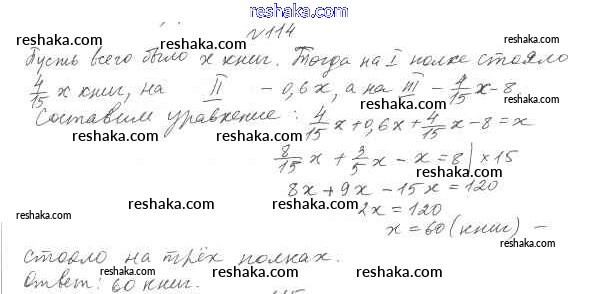 reshaka.com
№114
Пусть всего было x книг. Тогда на I полке стояло
reshaka.com reshaka.com reshaka.com
4/15 x книг, на II – 0,6x, а на III – 4/15 x-8
reshaka.com reshaka.com reshaka.com
Составим уравнение: 4/15 x+0,6x+4/15 x-8=x
reshaka.com reshaka.com reshaka.com
8/15 x + 3/5 x - x = 8 | ×15
reshaka.com reshaka.com reshaka.com
8x + 9x - 15x = 120
reshaka.com reshaka.com reshaka.com
2x = 120
reshaka.com
x = 60 (книг) –
reshaka.com reshaka.com reshaka.com
стояло на трёх полках.
reshaka.com reshaka.com reshaka.com
Ответ: 60 книг.
reshaka.com
115